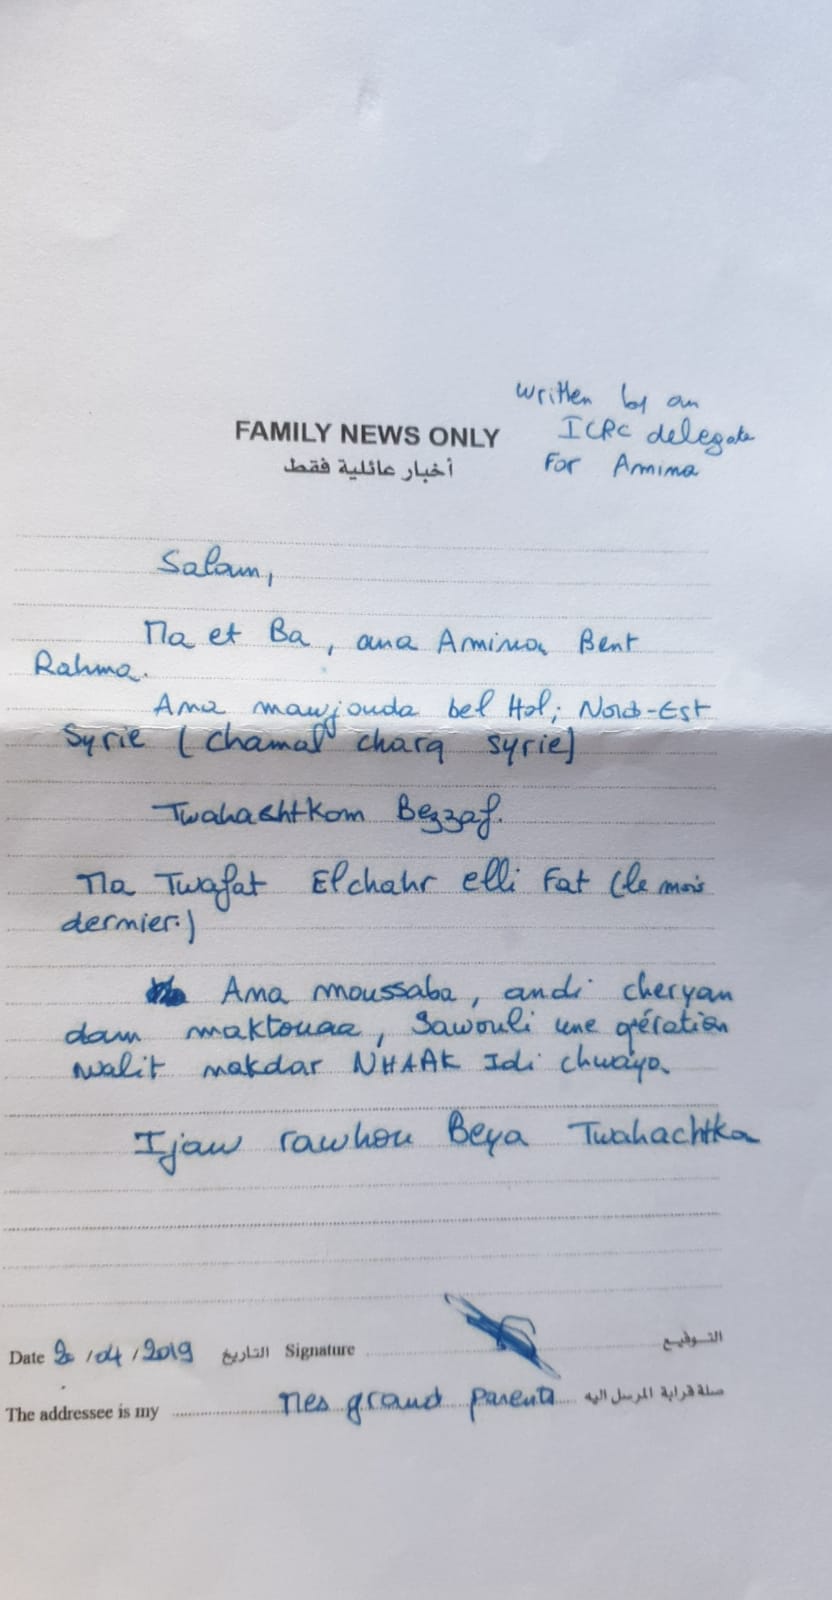 written by an
ICRC delegate
For Amina
FAMILY NEWS ONLY
أخبار عائلية فقط
Salam,
Ma et Ba, ana Amina Bent
Rahma.
Ana mawjouda bel Hol; Nord-Est
Syrie (chamal charq syrie)
Twahashtkom Bezzaf.
Ma Twafat Elchahr elli Fat (le mois
dernier.)
Ana moussaba, andi cheryan
dam maktouaa, Sawouli une opération
walit makdar NHAAK Idi chwaya
Ijaw rawhou Beya Twahachtka
Date 20/04/2019 التاريخ Signature التوقيع
The addressee is my mes grand parents صلة قرابة المرسل اليه